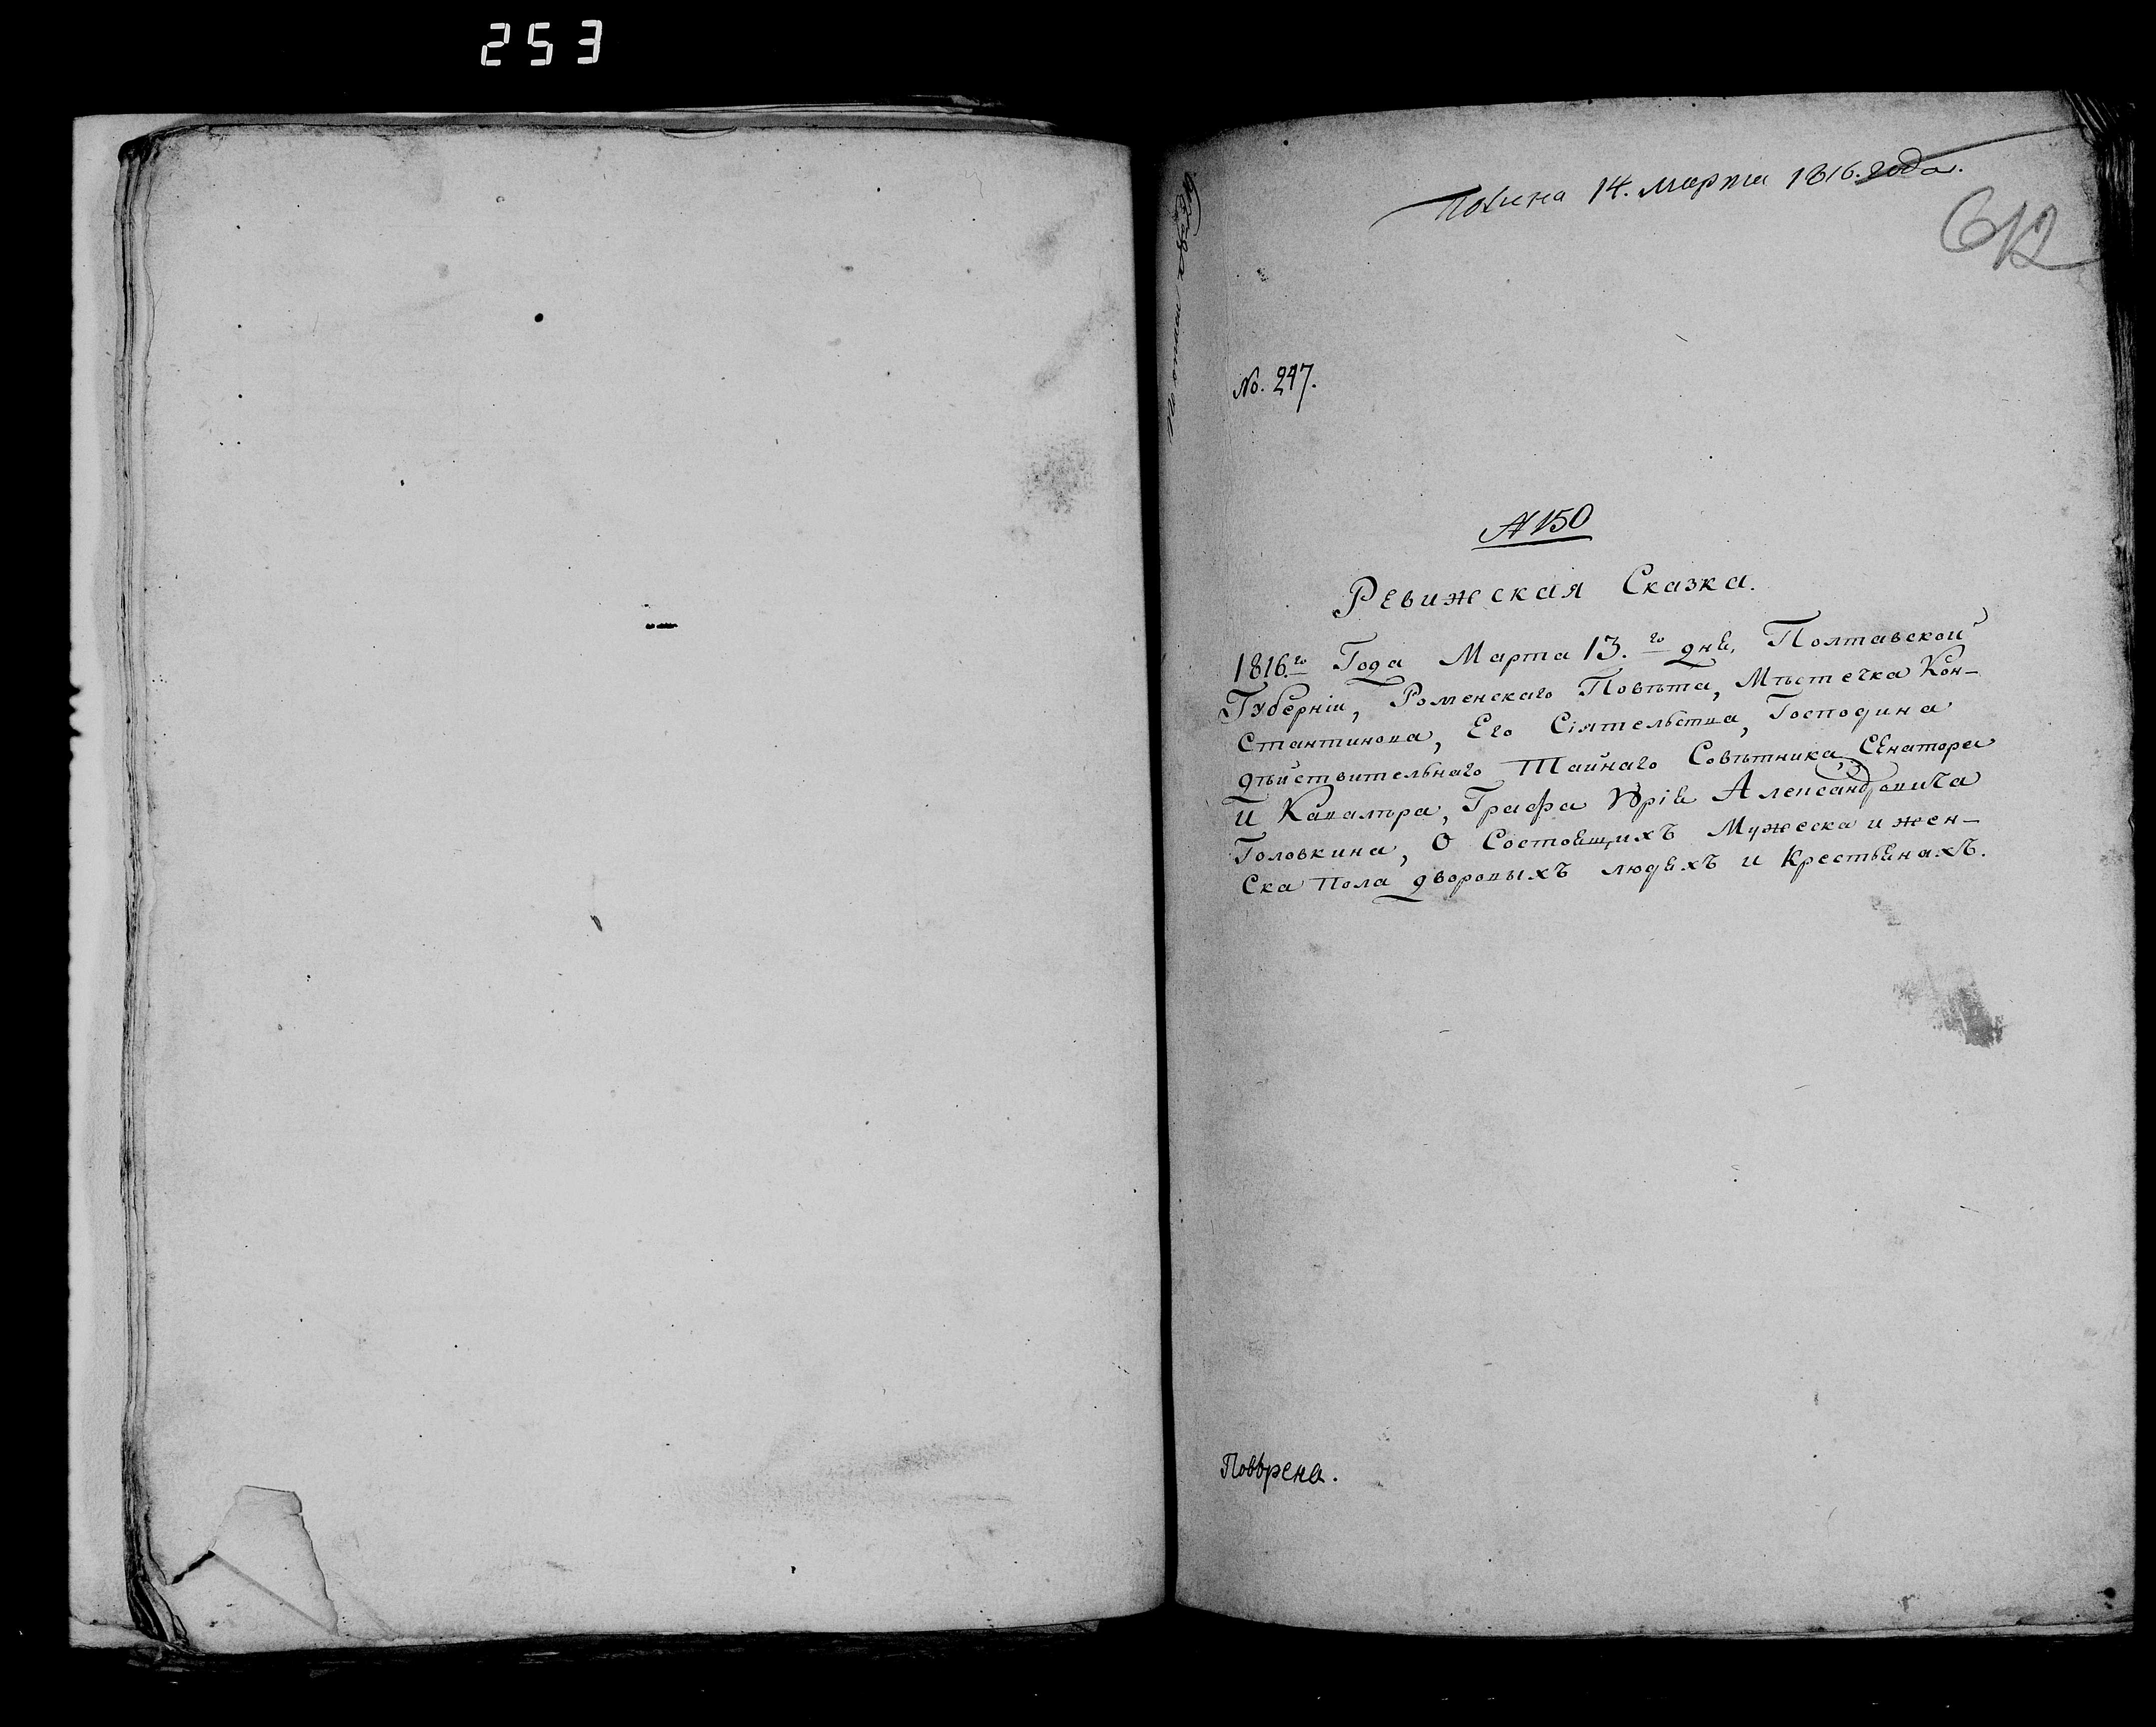 253
14. марта 1816. года.
612
No. 247.
№ 150
Ревижская Сказка.
1816.го Года Марта 13.го дня, Полтавской
Губерніи, Роменскаго Повѣта, Мѣстечка Кон-
стантинова, Его Сіятельства, Господина
дѣйствительнаго Тайнаго Совѣтника, Сенатора
и Кавалѣра, Графа Юрія Александровича
Головкина, О Состоящихъ Мужеска и жен-
ска пола дворовыхъ людяхъ и Крестьянахъ.
Повѣрена.